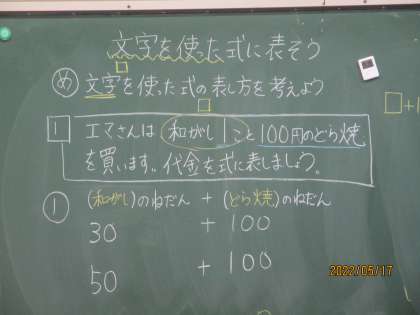 文字を使った式に表そう
□
め 文字を使った式の表し方を考えよう
□
1 エマさんは 和がし1こと100円のどら焼
を買います。代金を式に表しましょう。
□+1
① (和がし)のねだん + (どら焼)のねだん
30 + 100
50 + 100
2022/05/17